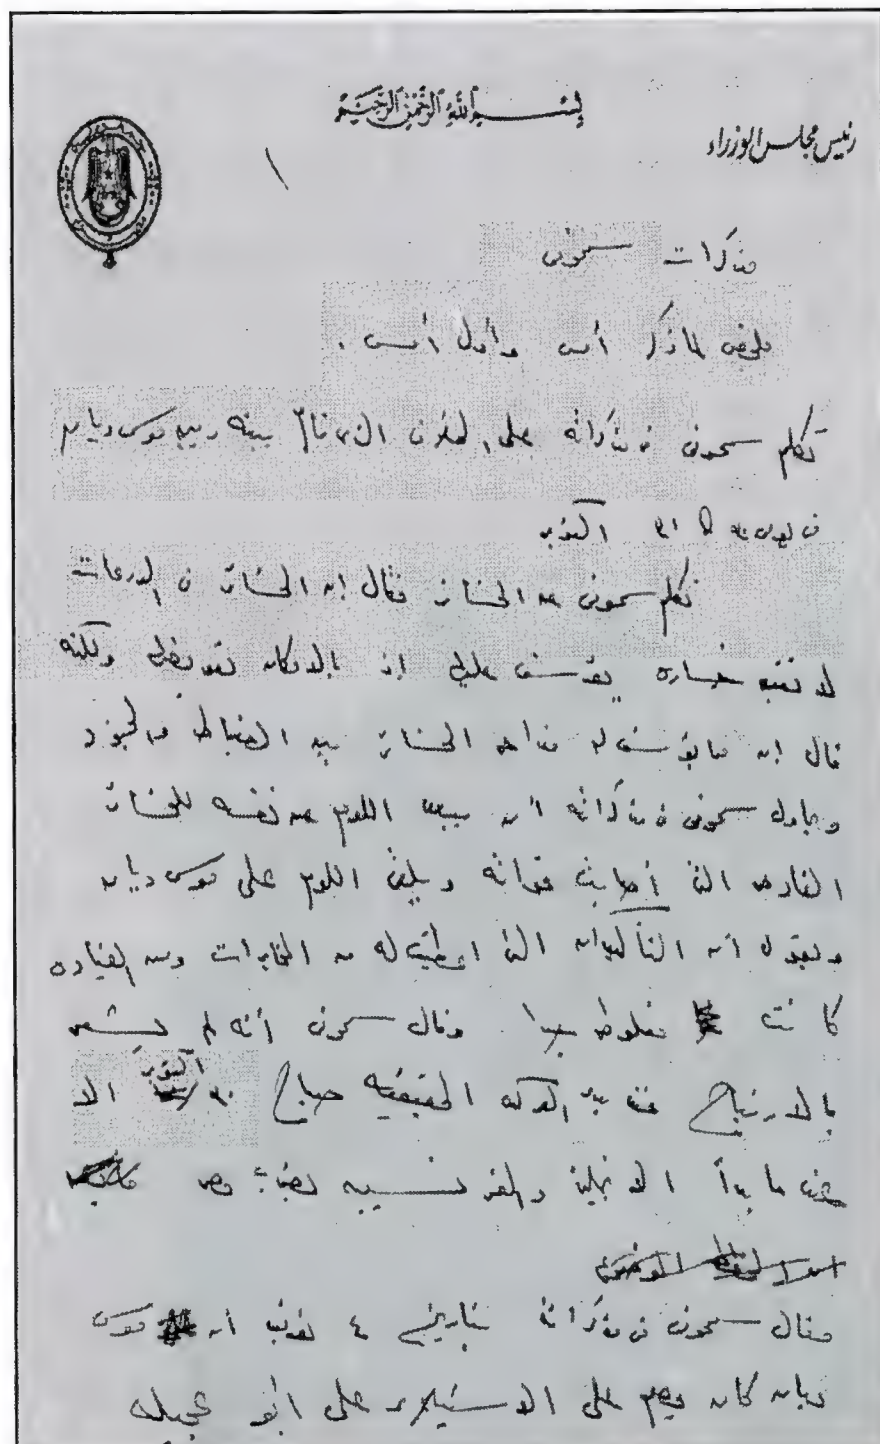 بسم الله الرحمن الرحيم
رئيس مجلس الوزراء
١
مذكرات سمحونى
ملخص لما ذكر أمس وأول أمس .
تكلم سمحونى فى مذكراته على الخلاف الذى قام بينه وبين موسى ديان
فى يومى ٣٠ ٣١ اكتوبر
تكلم سمحونى عن الخسائر فقال إن الخسائر فى المدرعات
لا تعتبر خساره يؤسف عليها إذ بالامكان تعويضها ولكنه
قال إن ما يؤسف له هى الخسائر بين الضباط والجنود
ويحاول سمحونى فى مذكراته أن يبعد اللوم عن نفسه للخسائر
الفادحه التى أصابت قواته ويلقى اللوم على موسى ديان
ويقول أن التأكيدات التى اعطيت له من المخابرات ومن القياده
كانت مغلوطه وقال سمحونى أنه لم يشعر
بالارتياح منذ بدء المعركه الحقيقيه صباح ٣٠ اكتوبر الا
عندما بدأ الانجليز والفرنسيين بضرب مصر
وقال سمحونى فى مذكراته بتاريخ ٤ نوفمبر أن موسى
ديان كان يصر على الاستيلاء على ابو عجيله